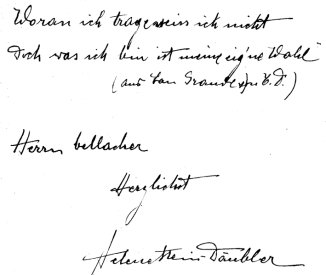 Woran ich trage weiss ich nicht
Doch was ich bin ist meine eig'ne Wahl"
(aus
Herrn bellacher
Herzlichst
Däubler